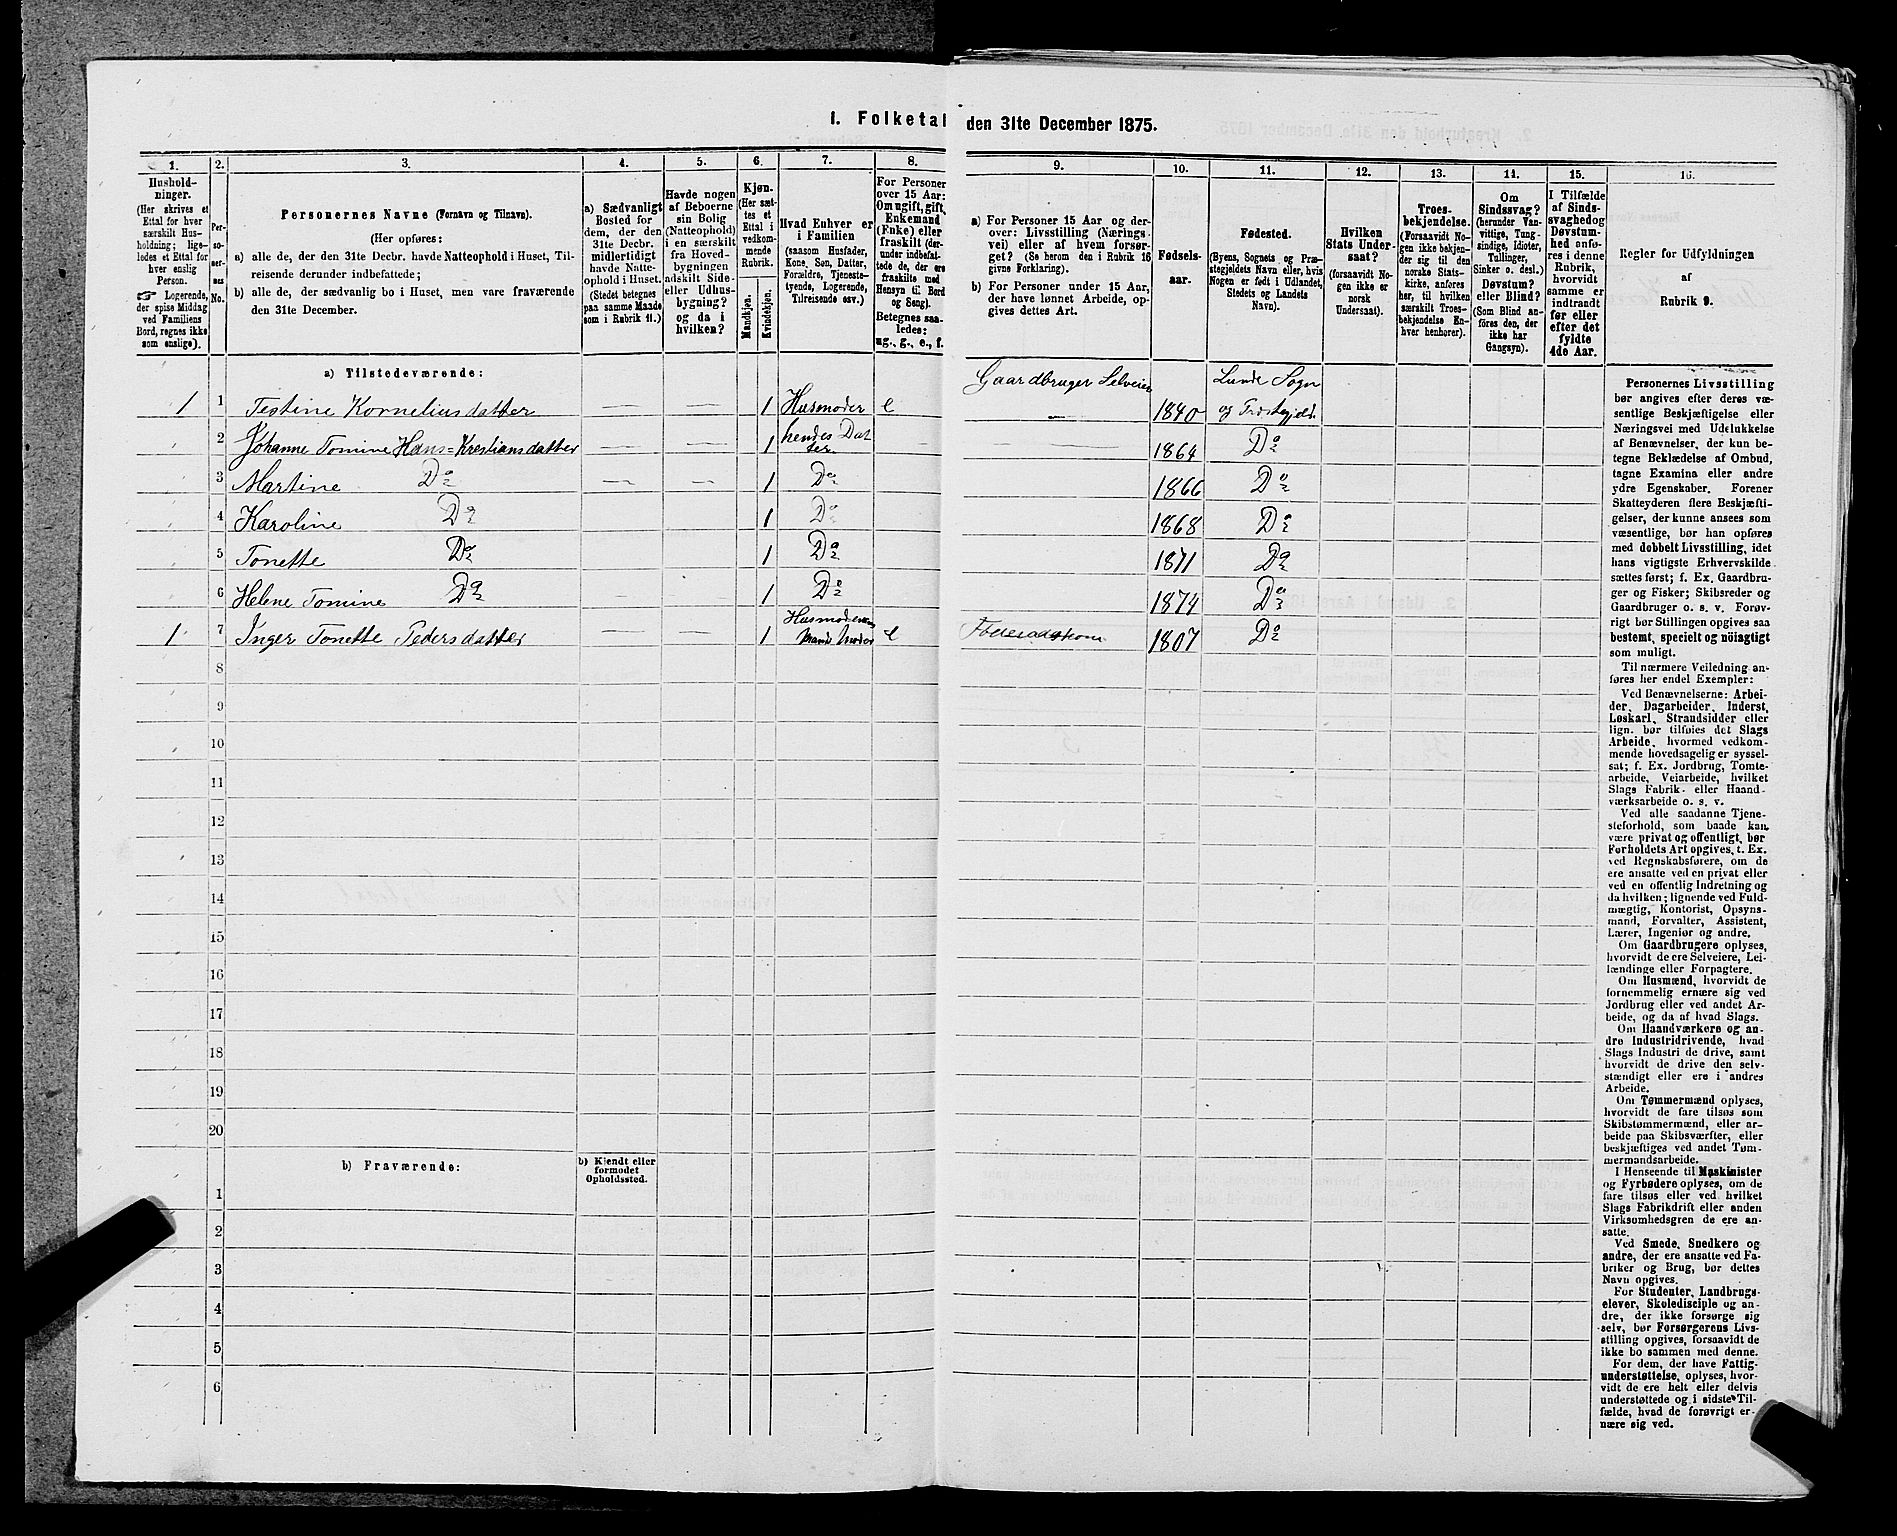 1. Folketal den 31te December 1875.
1.
2.
3.
4.
5.
6.
7.
8.
9.
10.
11.
12.
13.
14.
15.
16.
Hushold-
ninger.
(Her skrives et
Ettal for hver
særskilt Hus-
holdning; lige-
ledes et Ettal for
hver enslig
Person.
☞ Logerende,
der spise Middag
ved Familiens
Bord, regnes ikke
som enslige).
Per-
so-
ner-
nes
No.
Personernes Navne (Fornavn og Tilnavn).
(Her opføres:
a) alle de, der den 31te Decbr. havde Natteophold i Huset, Til-
reisende derunder indbefattede;
b) alle de, der sædvanlig bo i Huset, men vare fraværende
den 31te December.
a) Sædvanligt
Bosted for
dem, der den
31te Decbr.
midlertidigt
havde Natte-
ophold i Huset.
(Stedet betegnes
paa samme Maade
som i Rubrik 11.)
Havde nogen
af Beboerne
sin Bolig
(Natteophold)
i en særskilt
fra Hoved-
bygningen
adskilt Side-
eller Udhus-
bygning?
og da i
hvilken?
Kjøn.
(Her sæt-
tes et
Ettal i
vedkom-
mende
Rubrik.
Mandkjøn.
Kvindekjøn.
Hvad Enhver er
i Familien
(saasom Husfader,
Kone, Søn, Datter,
Forældre, Tjeneste-
tyende, Logerende,
Tilreisende osv.)
For Personer
over 15 Aar:
Om ugift, gift,
Enkemand
(Enke) eller
fraskilt (der-
under indbefat-
tede de, der ere
fraskilte med
Hensyn til Bord
og Seng).
Betegnes saa-
ledes:
ug., g., e., f.
a) For Personer 15 Aar og der-
over: Livsstilling (Nærings-
vei) eller af hvem forsør-
get? (Se herom den i Rubrik 16
givne Forklaring).
b) For Personer under 15 Aar,
der have lønnet Arbeide, op-
gives dettes Art.
Fødsels-
aar.
Fødested.
(Byens, Sognets og Præ-
stegjeldets Navn eller, hvis
Nogen er født i Udlandet,
Stedets og Landets
Navn).
Hvilken
Stats Under-
saat?
(forsaavidt No-
gen ikke er
norsk
Undersaat).
Troes-
bekjendelse.
(Forsaavidt No-
gen ikke bekjen-
der sig til den
norske Stats-
kirke, anføres
her, til hvilken
særskilt Troes-
bekjendelse En-
hver henhører).
Om
Sindssvag?
(herunder Van-
vittige, Tung-
sindige, Idioter,
Tullinger,
Sinker o. desl.)
Døvstum?
eller Blind?
(Som Blind an-
føres den, der
ikke har
Gangsyn).
I Tilfælde
af Sinds-
svaghed og
Døvstum-
hed anfø-
res i denne
Rubrik,
hvorvidt
samme er
indtraadt
før eller
efter det
fyldte
4de Aar.
Regler for Udfyldningen
af
Rubrik 9.
a) Tilstedeværende:
1 1 Testine Kornelius datter — — 1 Husmoder e Gaardbruger Selveier 1840 Lunde Sogn
og Præstegjeld
2 Johanne Tomine Hans=Krestians datter — — 1 hendes Dat
ter — 1864 Do
3 Martine Do — — 1 Do 1866 Do
4 Karoline Do — — 1 Do 1868 Do
5 Tonette Do — — 1 Do 1871 Do
6 Helene Tomine Do — — 1 Do 1874 Do
1 7 Inger Tonette Peders datter — — 1 Husmoderens
Mands Moder e Føderaadskone 1807 Do
8
9
10
11
12
13
14
15
16
17
18
19
20
b) Fraværende:
b) Kjendt eller
formodet
Opholdssted.
1
2
3
4
5
6
Personernes Livsstilling
bør angives efter deres væ-
sentlige Beskjæftigelse eller
Næringsvei med Udelukkelse
af Benævnelser, der kun be-
tegne Beklædelse af Ombud,
tagne Examina eller andre
ydre Egenskaber. Forener
Skatteyderen flere Beskjæfti-
gelser, der kunne ansees som
væsentlige, bør han opføres
med dobbelt Livsstilling, idet
hans vigtigste Erhvervskilde
sættes først; f. Ex. Gaardbru-
ger og Fisker; Skibsreder og
Gaardbruger o. s. v. Forøv-
rigt bør Stillingen opgives saa
bestemt, specielt og nöiagtigt
som muligt.
Til nærmere Veiledning an-
føres her endel Exempler:
Ved Benævnelserne: Arbei-
der, Dagarbeider, Inderst,
Løskarl, Strandsidder eller
lign. bør tilføies det Slags
Arbeide, hvormed vedkom-
mende hovedsagelig er syssel-
sat; f. Ex. Jordbrug, Tomte-
arbeide, Veiarbeide, hvilket
Slags Fabrik- eller Haand-
værksarbeide o. s. v.
Ved alle saadanne Tjene-
steforhold, som baade kan
være privat og offentligt, bør
Forholdets Art opgives, t. Ex.
ved Regnskabsførere, om de
ere ansatte ved en privat eller
ved en offentlig Indretning og
da hvilken; lignende ved Fuld-
mægtig, Kontorist, Opsyns-
mand, Forvalter, Assistent,
Lærer, Ingeniør og andre.
Om Gaardbrugere oplyses,
hvorvidt de ere Selveiere, Lei-
lændinge eller Forpagtere.
Om Husmænd, hvorvidt de
fornemmelig ernære sig ved
Jordbrug eller ved andet Ar-
beide, og da af hvad Slags.
Om Haandværkere og an-
dre Industridrivende, hvad
Slags Industri de drive, samt
hvorvidt de drive den selv-
stændigt eller ere i andres
Arbeide.
Om Tømmermænd oplyses,
hvorvidt de fare tilsøs som
Skibstømmermænd, eller ar-
beide paa Skibsværfter, eller
beskjæftiges ved andet Tøm-
mermandsarbeide.
I Henseende til Maskinister
og Fyrbødere oplyses, om de
fare tilsøs eller ved hvilket
Slags Fabrikdrift eller anden
Virksomhedsgren de ere an-
satte.
Ved Smede, Snedkere og
andre, der ere ansatte ved Fa-
briker og Brug, bør dettes
Navn opgives.
For Studenter, Landbrugs-
elever, Skoledisciple og an-
dre, der ikke forsørge sig
selv, bør Forsørgerens Livs-
stilling opgives, forsaavidt de
ikke bo sammen med denne.
For dem, der have Fattig-
understøttelse, oplyses, hvor-
vidt de ere helt eller delvis
understøttede og i sidste Til-
fælde, hvad de forøvrigt er-
nære sig ved.